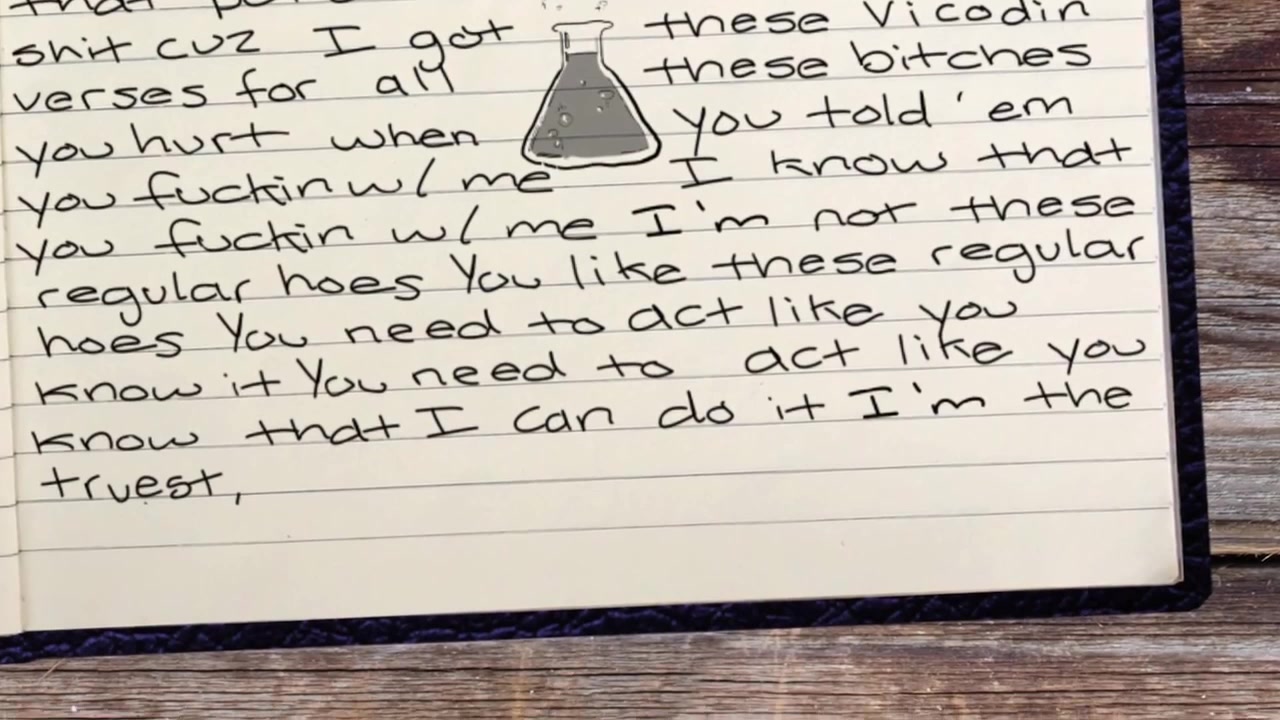 that
shit cuz I got these Vicodin
verses for all these bitches
you hurt when you told 'em
you fuckin w/ me I know that
you fuckin w/ me I'm not these
regular hoes You like these regular
hoes You need to act like you
know it You need to act like you
know that I can do it I'm the
truest,